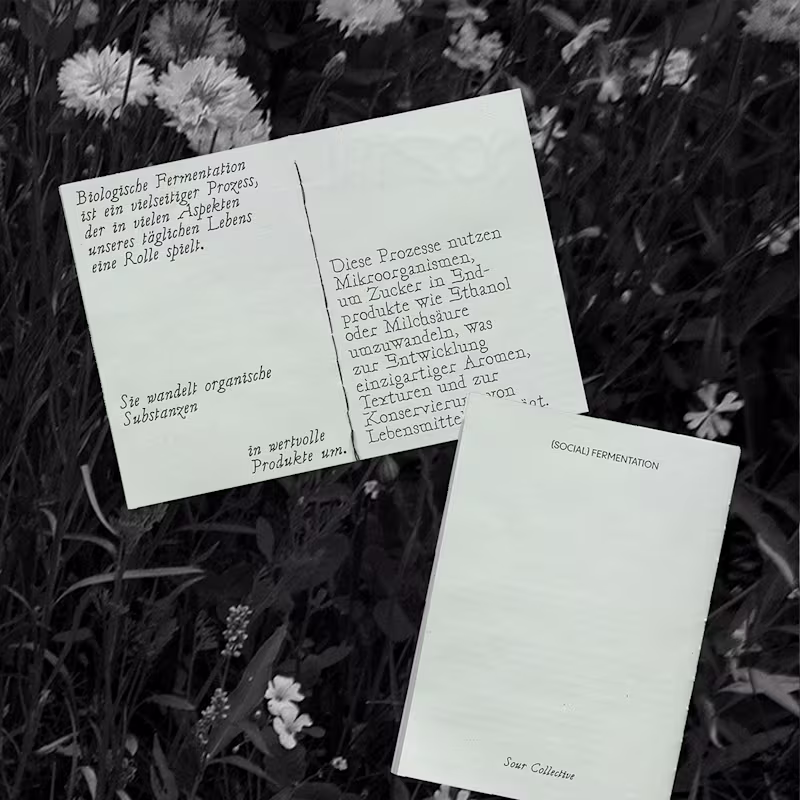 Biologische Fermentation
ist ein vielseitiger Prozess,
der in vielen Aspekten
unseres täglichen Lebens
eine Rolle spielt.
Sie wandelt organische
Substanzen
in wertvolle
Produkte um.
Diese Prozesse nutzen
Mikroorganismen,
um Zucker in End-
produkte wie Ethanol
oder Milchsäure
umzuwandeln, was
zur Entwicklung
einzigartiger Aromen,
Texturen und zur
von
(SOCIAL) FERMENTATION
Sour Collective